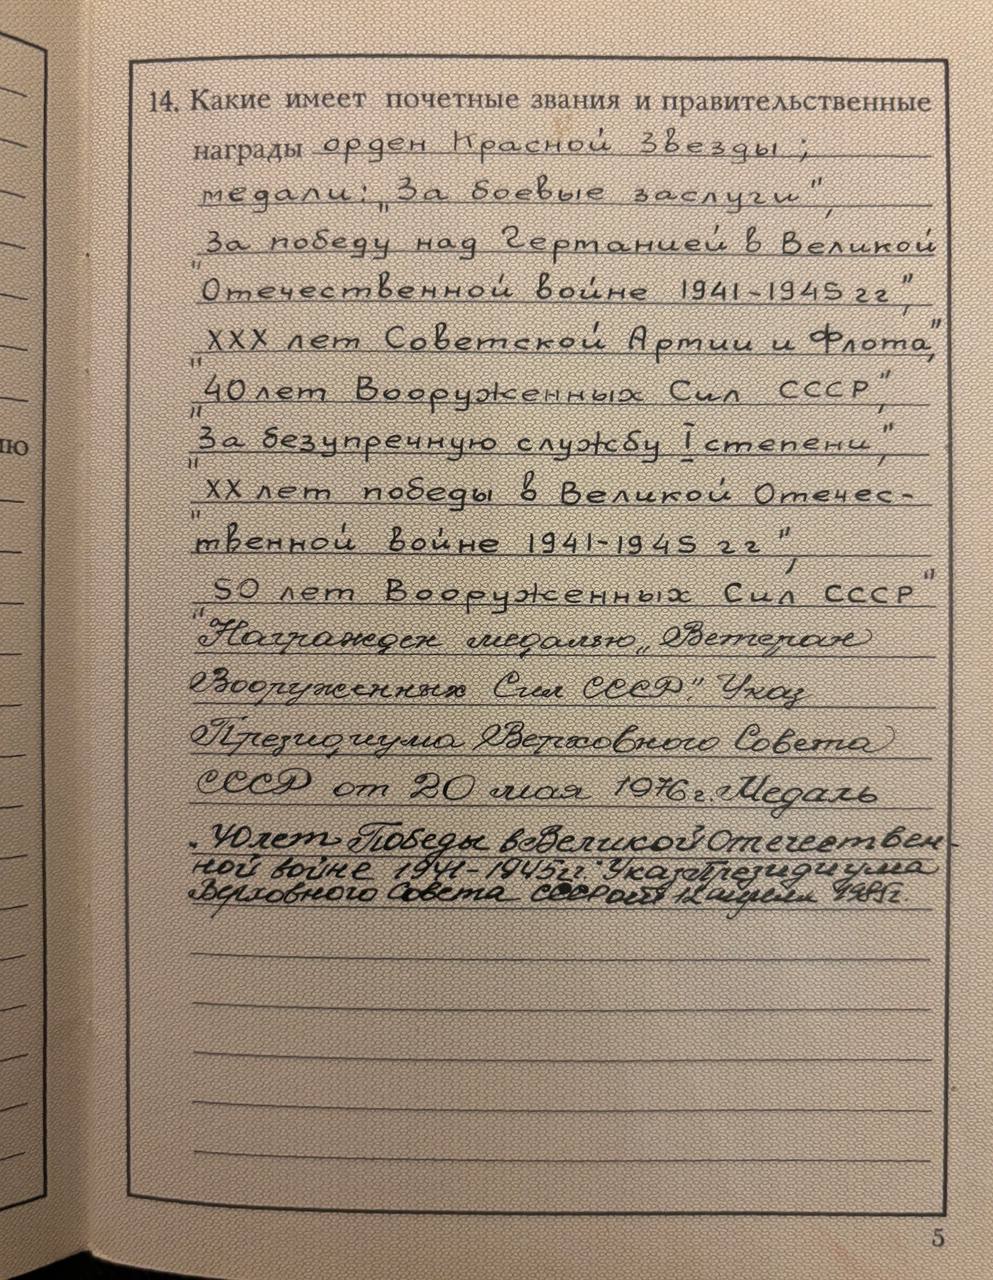 14. Какие имеет почетные звания и правительственные
награды орден Красной Звезды;
медали: „За боевые заслуги",
„За победу над Германией в Великой
Отечественной войне 1941-1945 гг",
„XXX лет Советской Армии и Флота",
„40 лет Вооруженных Сил СССР",
„За безупречную службу I степени",
„XX лет победы в Великой Отечес-
твенной войне 1941-1945 гг",
„50 лет Вооруженных Сил СССР"
Награжден медалью „Ветеран
Вооруженных Сил СССР". Указ
Президиума Верховного Совета
СССР от 20 мая 1976 г. Медаль
„40 лет Победы в Великой Отечествен-
ной войне 1941-1945 гг." Указ Президиума
Верховного Совета СССР от 12 апреля 1985 г.
5
ню